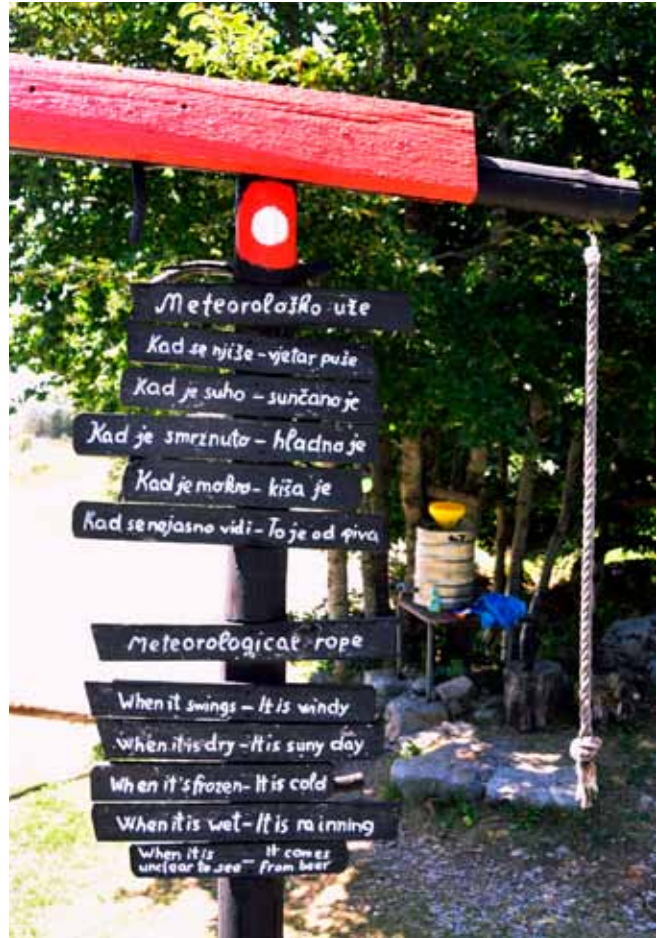 Meteorološko uže
Kad se njiše - vjetar puše
Kad je suho - sunčano je
Kad je smrznuto - hladno je
Kad je mokro - kiša je
Kad se nejasno vidi - To je od piva
Meteorological rope
When it swings - It is windy
When it is dry - It is suny day
When it's frozen - It is cold
When it is wet - It is rainning
When it is - It comes
unclear to see from beer